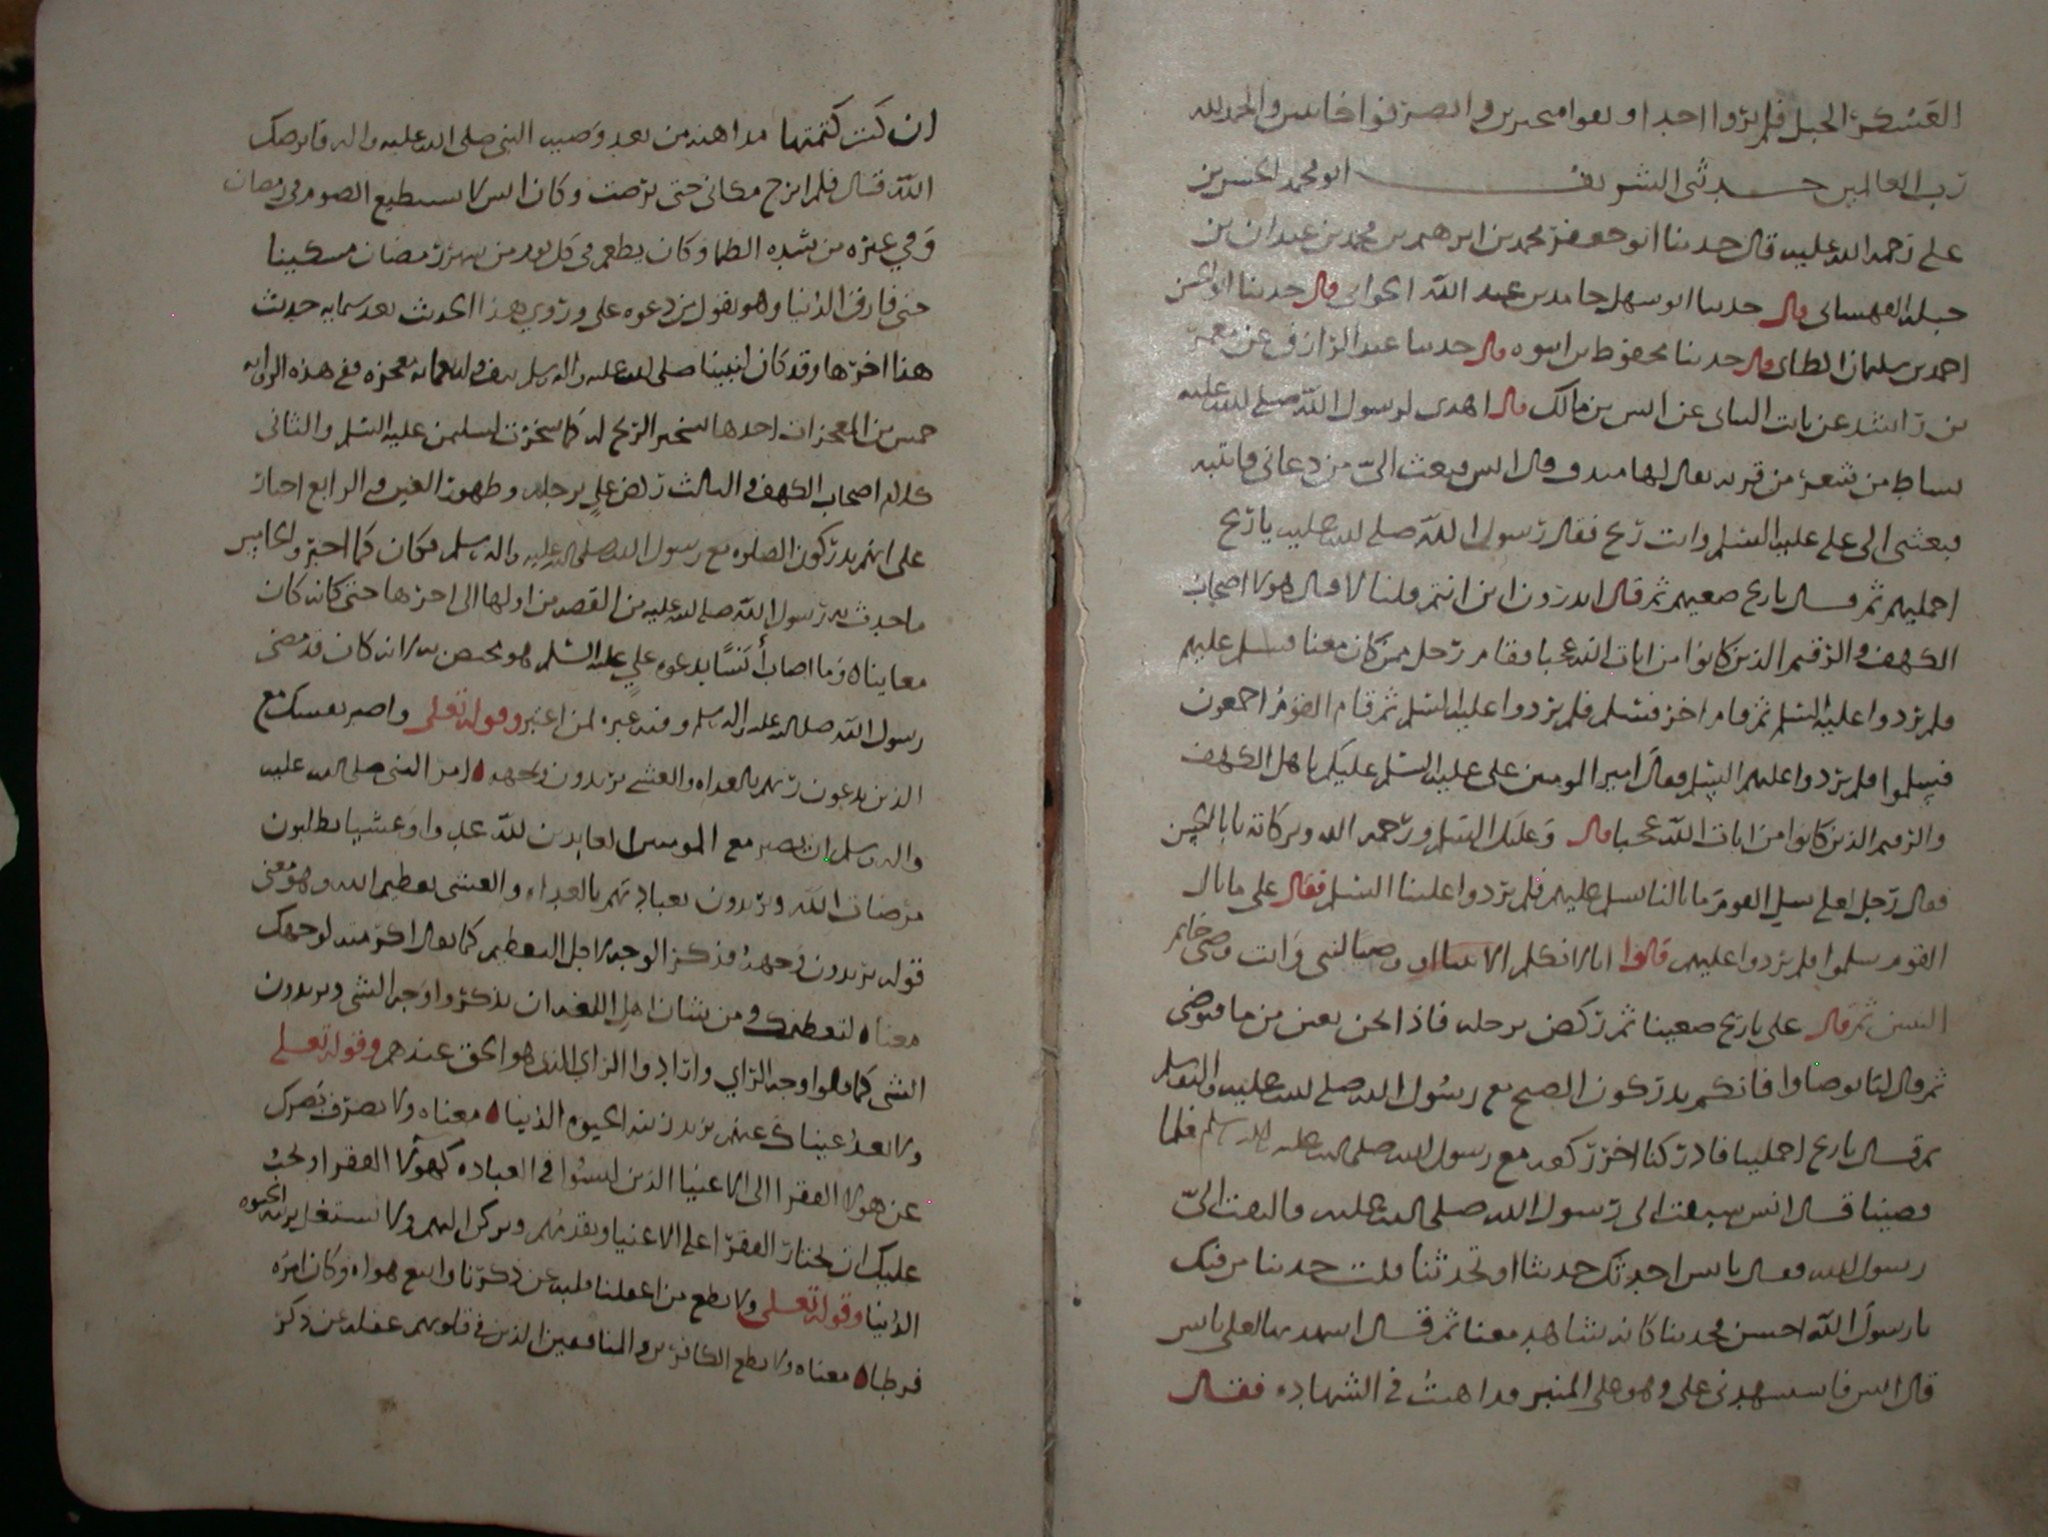 العسكر الجبل فلم يروا احدا وبقوا متحيرين وانصرفوا خائبين والحمد لله
رب العالمين حدثني الشريف ابو محمد الحسن بن
علي رحمة الله عليه قال حدثنا ابو جعفر محمد بن ابرهيم بن محمد بن عبدان بن
جبلة القهستاني قال حدثنا ابو سهل حامد بن عبد الله قال حدثنا ابو الحسن
احمد بن سليمان الطائي قال حدثنا محفوظ بن قال حدثنا عبد الرزاق عن معمر
بن راشد عن ثابت عن انس بن مالك قال اهدى لرسول الله صلى الله عليه
بساط من شعر من قرية يقال لها قال انس فبعث الي من دعاني فاتيته
فبعثني الى علي عليه السلم فقال رسول الله صلى الله عليه يا ريح
احمليهم ثم قال يا ريح ضعيهم ثم قال اتدرون اين انتم قلنا لا قال هولا اصحاب
الكهف والرقيم الذين كانوا من ايات الله عجبا فقام رجل ممن كان معنا فسلم عليهم
فلم يردوا عليه السلم ثم قام اخر فسلم فلم يردوا عليه السلم ثم قام القوم اجمعون
فسلموا فلم يردوا عليهم السلم فقال امير المومنين علي عليه السلم السلم عليكم يا اهل الكهف
والرقيم الذين كانوا من ايات الله عجبا قال وعليك السلم ورحمة الله وبركاته يا ابا الحسن
فقال رجل لعلي سل القوم ما بالنا نسلم عليهم فلم يردوا علينا السلم فقال علي ما بال
القوم سلموا فلم يردوا عليهم قالوا انا لا نكلم الا نبيا او وصيا لنبي وانت وصي خاتم
النبيين ثم قال علي يا ريح ضعينا ثم ركض برجله فاذا نحن بعين من ما فتوضى
ثم قال لنا توضاوا فانكم تدركون الصبح مع رسول الله صلى الله عليه واله وسلم
ثم قال يا ريح احملينا فادركنا اخر ركعة مع رسول الله صلى الله عليه واله وسلم فلما
قضينا قال انس سبقت الى رسول الله صلى الله عليه فالتفت الي
رسول الله فقال يا انس احدثك حديثا او تحدثنا قلت حديثنا من فيك
يا رسول الله احسن فحدثنا كانه شاهد معنا ثم قال اشهد بها لعلي يا انس
قال انس فاستشهدني علي وهو على المنبر فداهنت في الشهادة فقال
ان كنت كتمتها مداهنة من بعد وصية النبي صلى الله عليه واله فابرصك
الله قال فلم ابرح مكاني حتى برصت وكان انس لا يستطيع الصوم في رمضان
وفي غيره من شدة الظما وكان يطعم في كل يوم من شهر رمضان مسكينا
حتى فارق الدنيا وهو يقول من دعوة علي وروي هذا الحديث بعد حديث
هذا اخرها وقد كان لنبينا صلى الله عليه واله وسلم معجزة ففي هذه الرواية
خمس من المعجزات احدها تسخير الريح له كما سخرت لسليمن عليه السلم والثاني
كلام اصحاب الكهف والثالث ركض علي برجله وظهور العين والرابع اخبار
علي انهم يدركون الصلوة مع رسول الله صلى الله عليه واله وسلم فكان كما اخبر والخامس
ما حدث به رسول الله صلى الله عليه من القصة من اولها الى اخرها حتى كانه كان
معاينا وما اصاب أنسًا بدعوة علي عليه السلم هو مختص به لانه كان قد مضى
رسول الله صلى الله عليه واله وسلم وفيه عبرة لمن اعتبر وقوله تعلى واصبر نفسك مع
الذين يدعون ربهم بالغداة والعشي يريدون وجهه امر النبي صلى الله عليه
واله وسلم ان يصبر مع المومنين العابدين لله غدوا وعشيا يطلبون
مرضات الله ويريدون بعبادتهم بالغداة والعشي تعظيم الله وهو معنى
قوله يريدون وجهه فذكر الوجه لاجل التعظيم كما يقال اكرمته لوجهك
معناه لتعظيمك ومن شان اهل اللغة ان يذكروا وجه الشي ويريدون
الشي كما قالوا وجه الراي وارادوا الراي الذي هو الحق عندهم وقوله تعلى
ولا تعد عيناك عنهم تريد زينة الحيوة الدنيا معناه ولا تصرف بصرك
عن هولا الفقرا الى الاغنيا الذين ليسوا في العبادة كهولا الفقرا وليس
عليك ان تختار الفقرا على الاغنيا وتقدمهم وتركن اليهم ولا تشتغل بزينة الحيوة
الدنيا وقوله تعلى ولا تطع من اغفلنا قلبه عن ذكرنا واتبع هواه وكان امره
فرطا معناه ولا تطع الكافرين والمنافقين الذين في قلوبهم غفلة عن ذكر